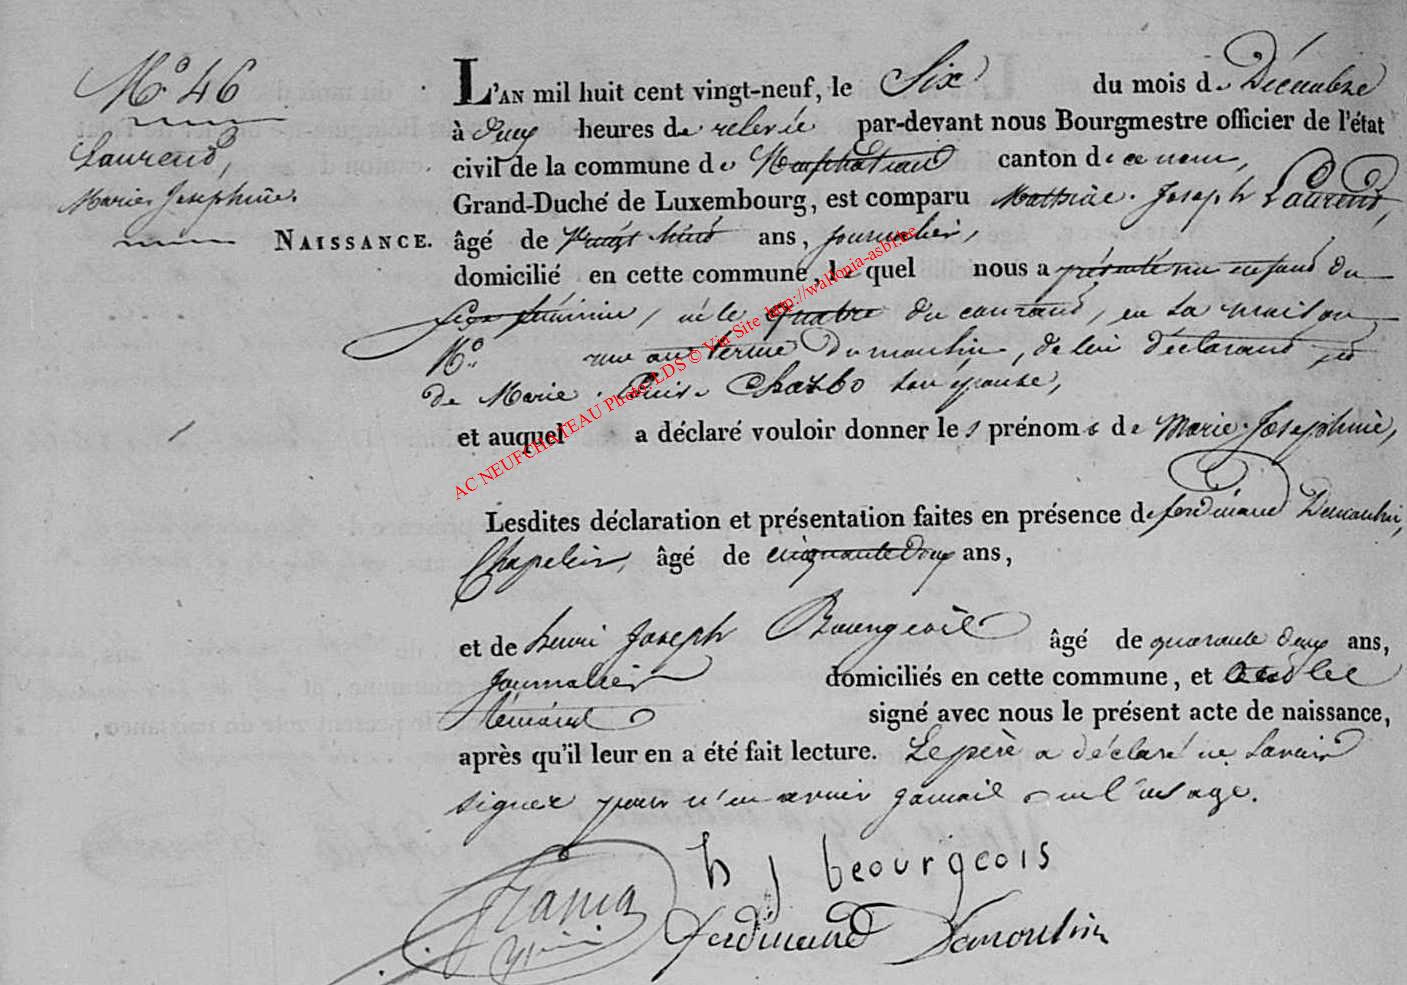 N.° 46
Laurend,
Marie Josephine.
NAISSANCE.
L'AN mil huit cent vingt-neuf, le Six du mois de Décembre
à deux heures de relevée par-devant nous Bourgmestre officier de l'état
civil de la commune de Neufchateau canton de ce nom,
Grand-Duché de Luxembourg, est comparu Joseph Laurend,
âgé de vingt ans, journalier,
domicilié en cette commune, lequel nous a présenté un enfant du
sexe féminin, né le quatre du courant, en sa maison
N.° rue du moulin, de lui déclarant et
de Marie Louise son épouse,
et auquel a déclaré vouloir donner les prénoms de Marie Josephine,
Lesdites déclaration et présentation faites en présence de ferdinand Demoulin,
Chapelier, âgé de cinquante deux ans,
et de henri Joseph Bourgeois âgé de quarante deux ans,
Journalier domiciliés en cette commune, et ont les
témoins signé avec nous le présent acte de naissance,
après qu'il leur en a été fait lecture. Le père a déclaré ne savoir
signer pour n'en avoir jamais eu l'usage.
h j beourgeois
ferdinand Demoulin
AC NEUFCHATEAU Photo LDS © Via Site http://wallonia-asbl.be